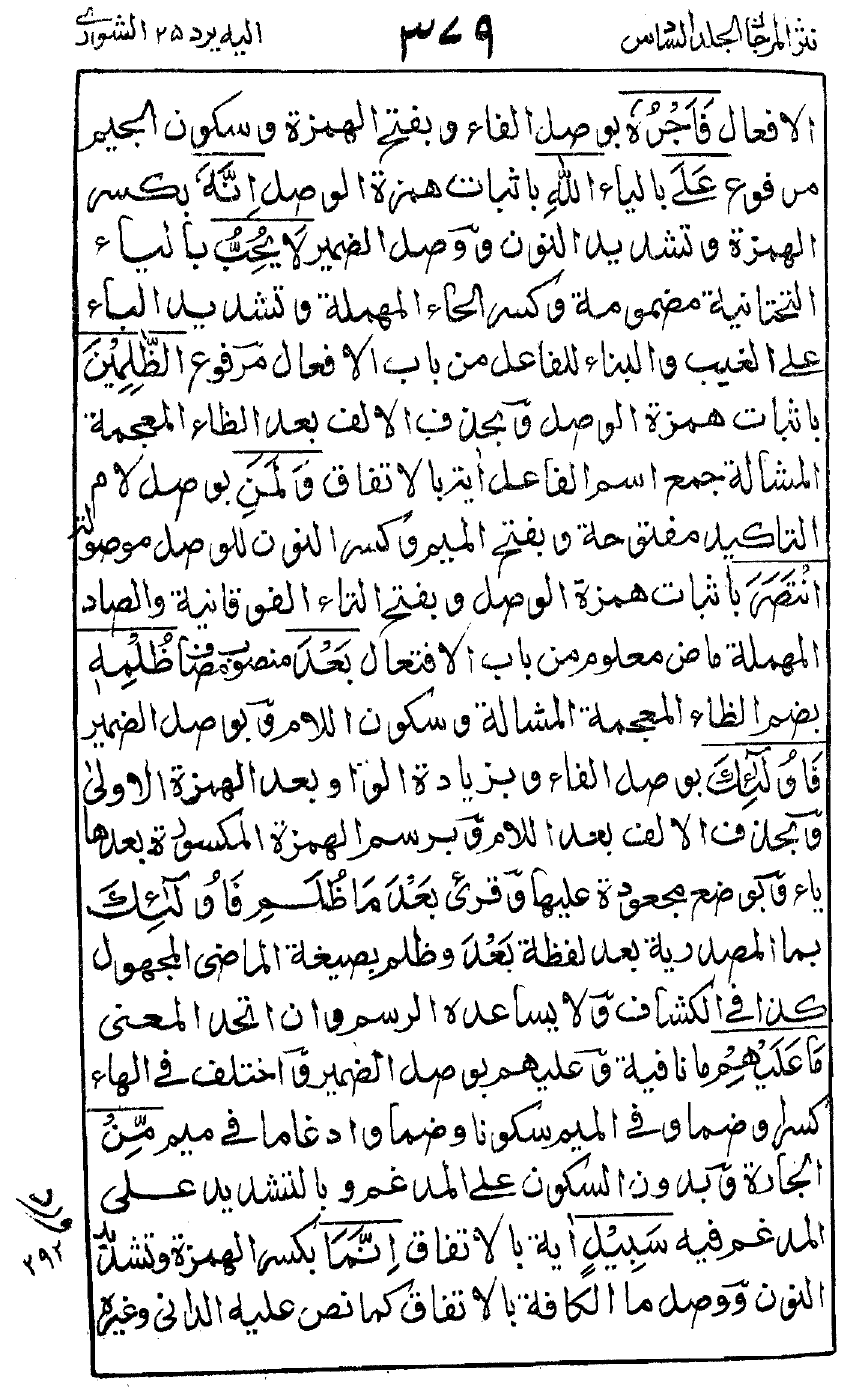 نثر المرجان الجلد السادس ٣٧٩ اليه يرد ٢٥ الشورى
الافعال فَاَجْرُهٗ بوصل الفاء و بفتح الهمزة و سكون الجيم
مرفوع عَلَى بالياء اللّٰهِ باثبات همزة الوصل اِنَّهٗ بكسر
الهمزة و تشديد النون وَوصل الضمير لَا يُحِبُّ بالياء
التحتانية مضمومة و كسر الحاء المهملة و تشديد الباء
على الغيب و البناء للفاعل من باب الافعال مرفوع الظّٰلِمِيْنَ
باثبات همزة الوصل وَبحذف الالف بعد الظاء المعجمة
المشالة جمع اسم الفاعل اٰية بالاتفاق وَلَمَنِ بوصل لام
التاكيد مفتوحة و بفتح الميم وكسر النون للوصل موصولة
انْتَصَرَ باثبات همزة الوصل و بفتح التاء الفوقانية والصاد
المهملة ماض معلوم من باب الافتعال بَعْدَ منصوب مضاف ظُلْمِهٖ
بضم الظاء المعجمة المشالة و سكون اللام وَبوصل الضمير
فَاُولٰٓئِكَ بوصل الفاء و بزيادة الواو بعد الهمزة الاولى
وَبحذف الالف بعد اللام وَبرسم الهمزة المكسورة بعدها
ياء وَبوضع مجعودة عليها وَقرئ بَعْدَ مَا ظُلِمَ فَاُولٰٓئِكَ
بما المصدرية بعد لفظة بَعْدَ و ظلم بصيغة الماضى المجهول
كذا فى الكشاف وَلا يساعده الرسم و ان اتحد المعنى
مَا عَلَيْهِمْ ما نافية وَعليهم بوصل الضمير وَاختلف فى الهاء
كسرا و ضما و فى الميم سكونا و ضما و ادغاما فى ميم مِّنْ
الجارة وَبدون السكون على المدغم و بالتشديد على
المدغم فيه سَبِيْلٍ اٰية بالاتفاق اِنَّمَا بكسر الهمزة و تشديد
النون وَوصل ما الكافة بالاتفاق كما نص عليه الدانى وغيره
٣٩٢